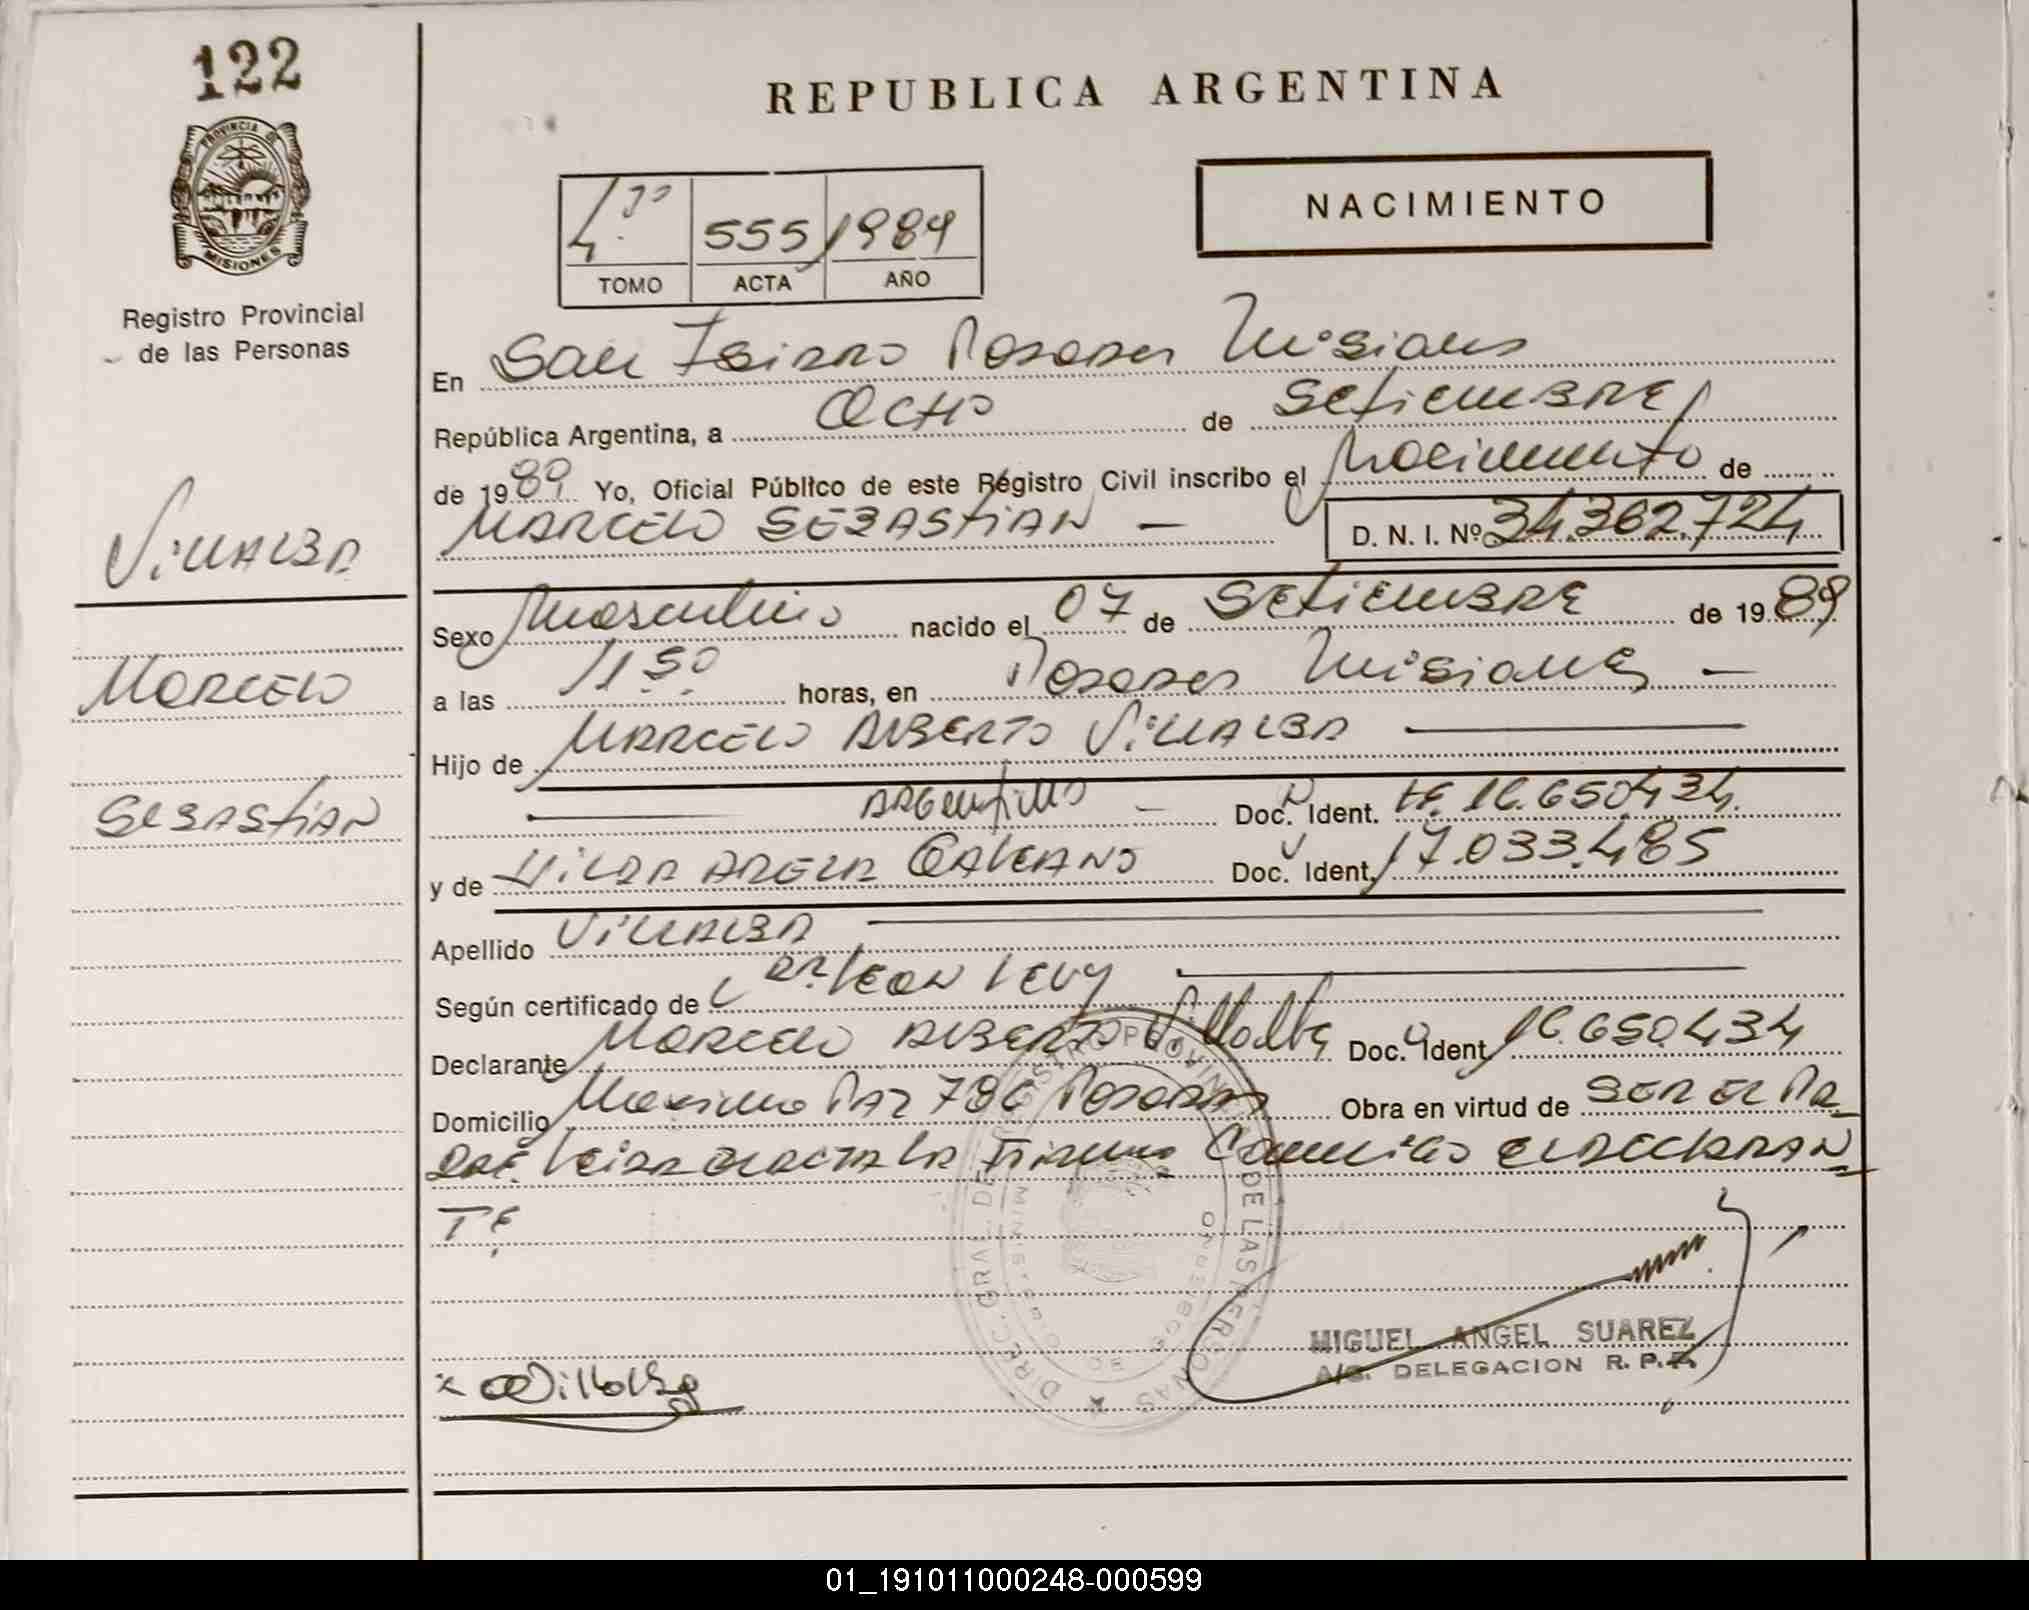 122
PROVINCIA DE
MISIONES
Registro Provincial
de las Personas
REPUBLICA ARGENTINA
NACIMIENTO
555 1989
TOMO ACTA AÑO
En San Isidro Posadas Misiones
República Argentina, a Ocho de Setiembre
de 1989 Yo, Oficial Público de este Registro Civil inscribo el Nacimiento de
MARCELO SEBASTIAN — D. N. I. Nº 34.362.724
VILLALBA
MARCELO
SEBASTIAN
Sexo Masculino nacido el 07 de SETIEMBRE de 1989
a las 11 50 horas, en Posadas Misiones —
Hijo de MARCELO ALBERTO VILLALBA
ARGENTINO — Doc. Ident. 16.650.434.
y de HILDA Galeano Doc. Ident. 17.033.485
Apellido VILLALBA
Según certificado de Dr. LEON LEVY
Declarante MARCELO ALBERTO Villalba Doc. Ident. 16.650.434
Domicilio Maximo PAZ 786 Posadas Obra en virtud de SER EL PA
DRE Leida el acta la Firma Conmigo el DECLARAN
TE
DIREC. GRAL. DE REGISTRO PROVINCIAL DE LAS PERSONAS
x Villalba
MIGUEL ANGEL SUAREZ
A/C. DELEGACION R. P. P.
01_191011000248-000599